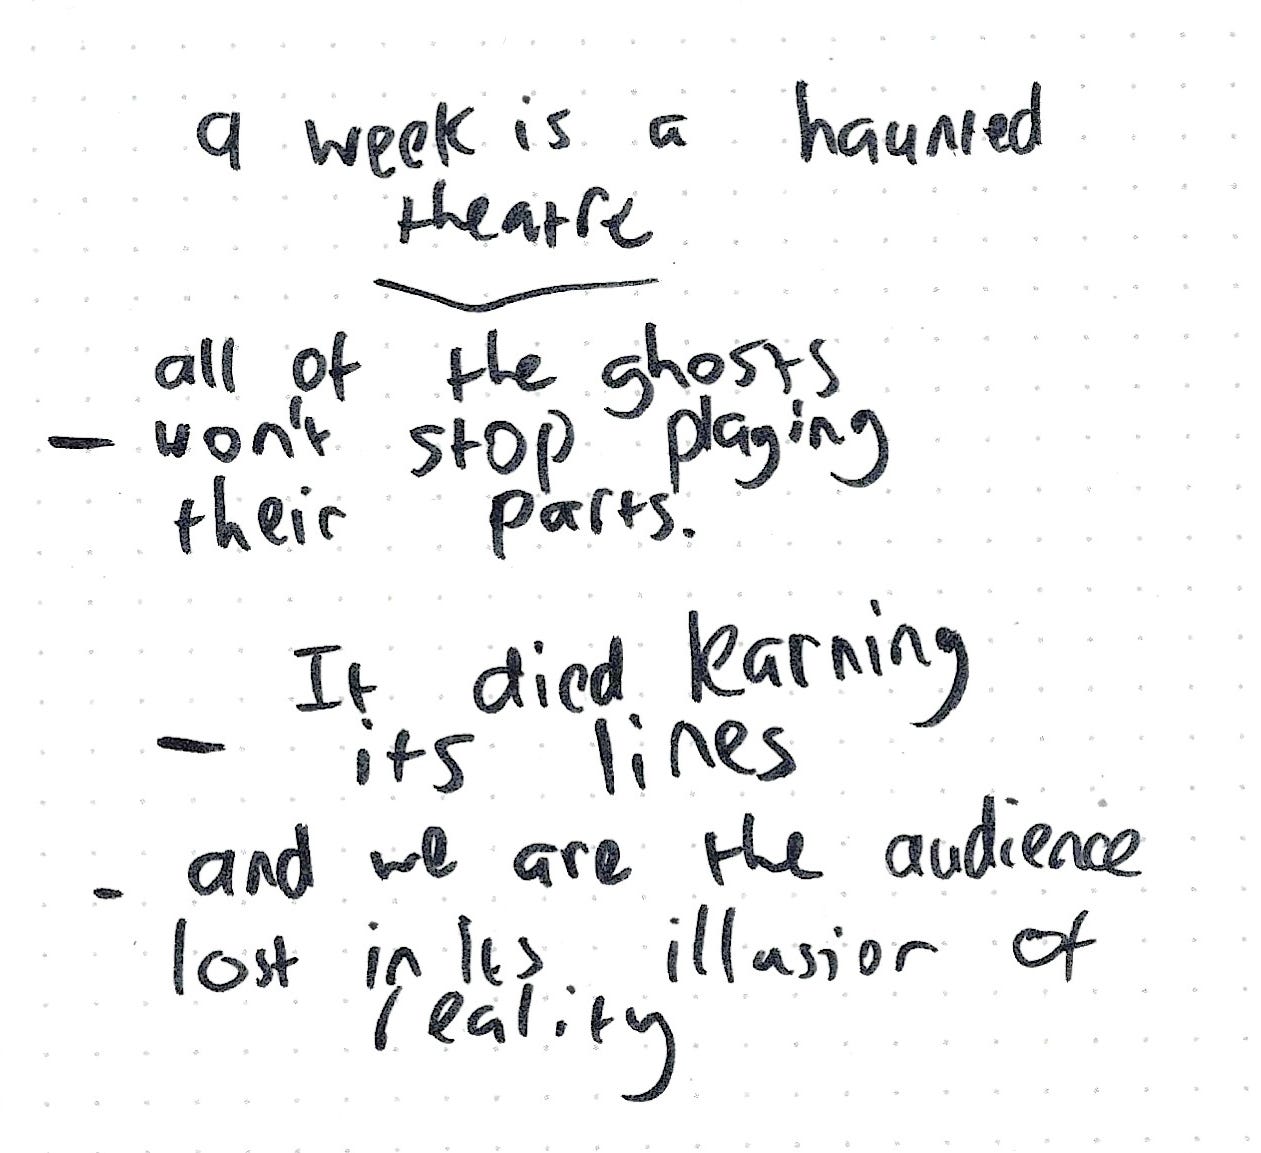 a week is a haunted
theatre
all of the ghosts
- won't stop playing
their parts.
It died learning
- its lines
- and we are the audience
lost in its illusion of
reality